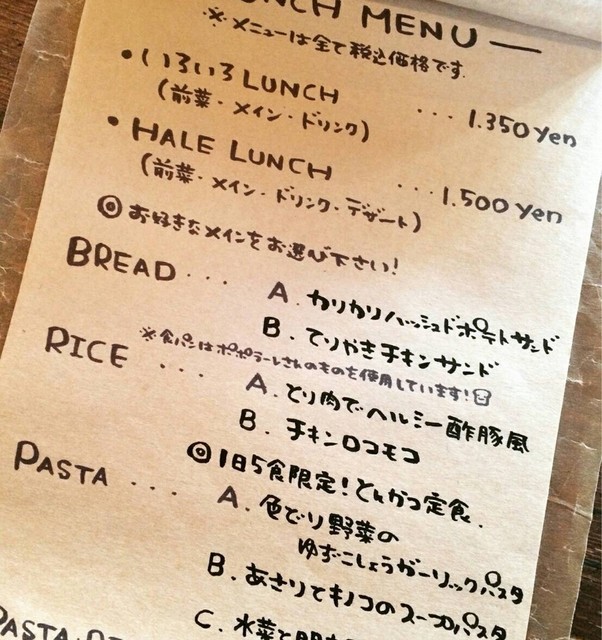 LUNCH MENU —
※メニューは全て税込価格です.
・いろいろLUNCH ... 1.350 yen
(前菜・メイン・ドリンク)
・HALE LUNCH ... 1.500 yen
(前菜・メイン・ドリンク・デザート)
◎お好きなメインをお選び下さい!
BREAD ... A.カリカリハッシュドポテトサンド
B.てりやきチキンサンド
※食パンはポポラーレさんのものを使用しています!
RICE ... A.とり肉でヘルシー酢豚風
B.チキンロコモコ
◎1日5食限定!とんかつ定食.
PASTA ... A.色どり野菜の
ゆずこしょうガーリックパスタ
B.あさりとキノコのスープパスタ
C.水菜と
PASTA